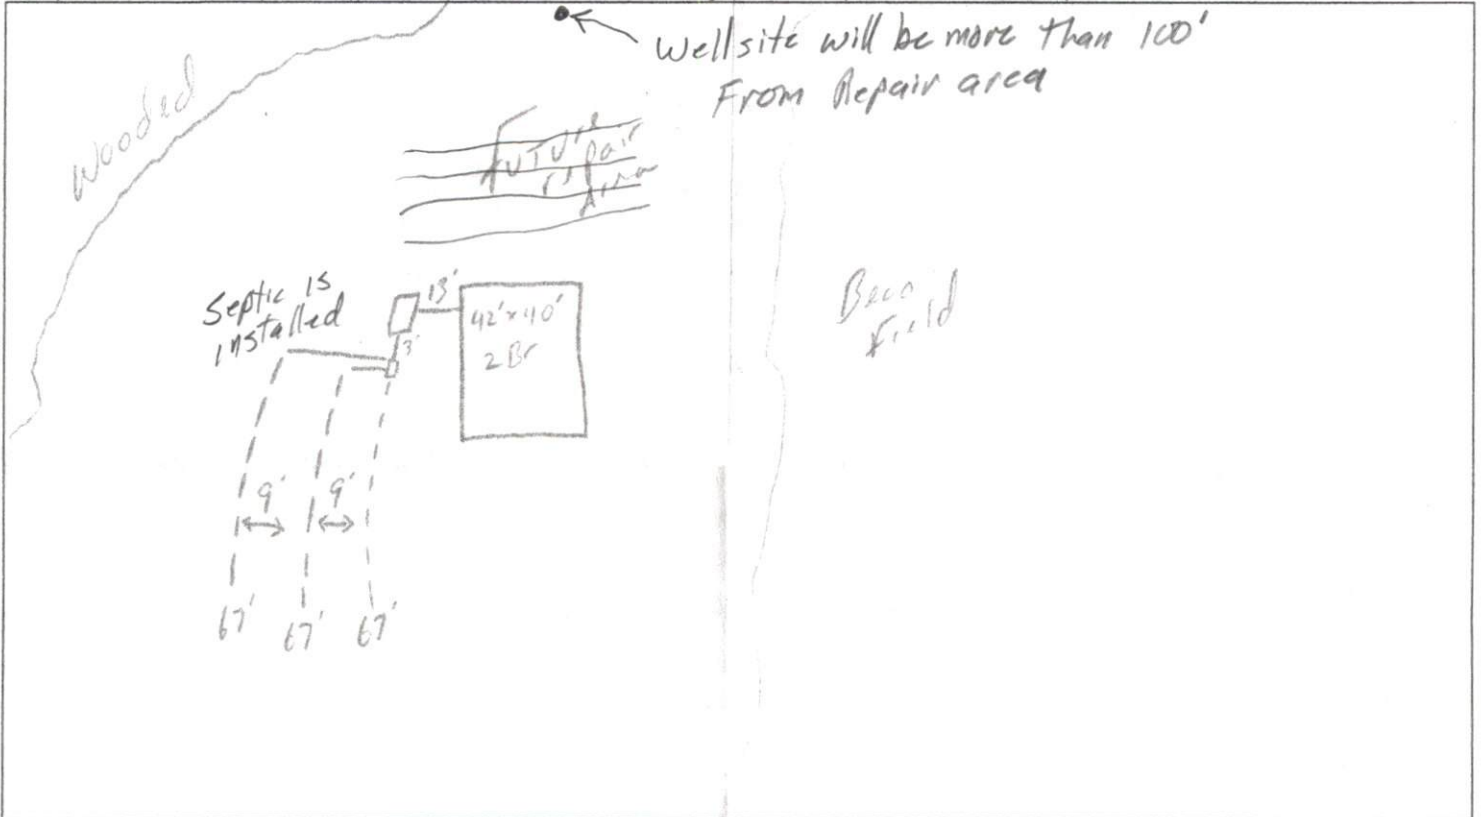 Well site will be more than 100'
From Repair area
Wooded
Future
repair
Area
Septic is
installed
13'
42' x 40'
2 Br
3'
Bean
Field
9'
9'
67'
67'
67'